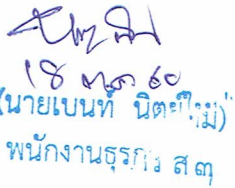 18 ต.ค. 60
(นายเบนท์ นิตย์ใหม่)
พนักงานธุรการ ส ๓